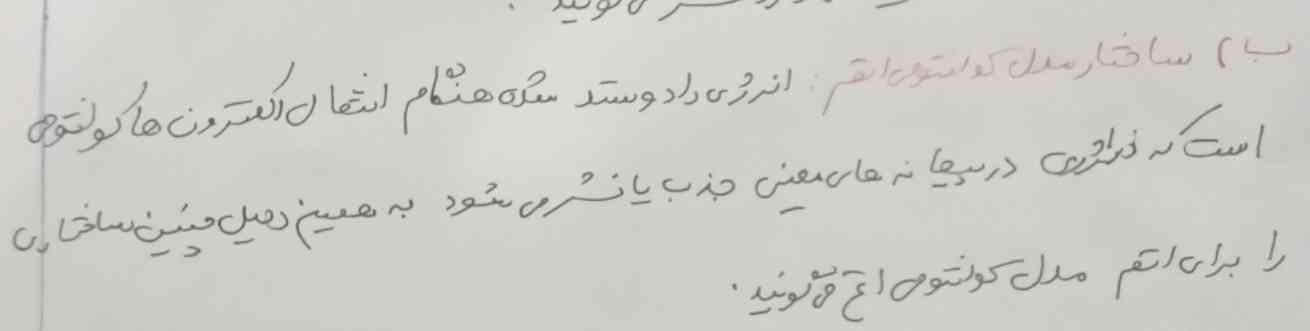 می‌گویند.
ب) ساختار مدل کوانتومی اتم: انرژی داد و ستد شده هنگام انتقال الکترون ها کوانتومی
است که انرژی در پیمانه های معینی جذب یا نشر می شود به همین دلیل چنین ساختاری
را برای اتم مدل کوانتومی اتم می‌گویند.